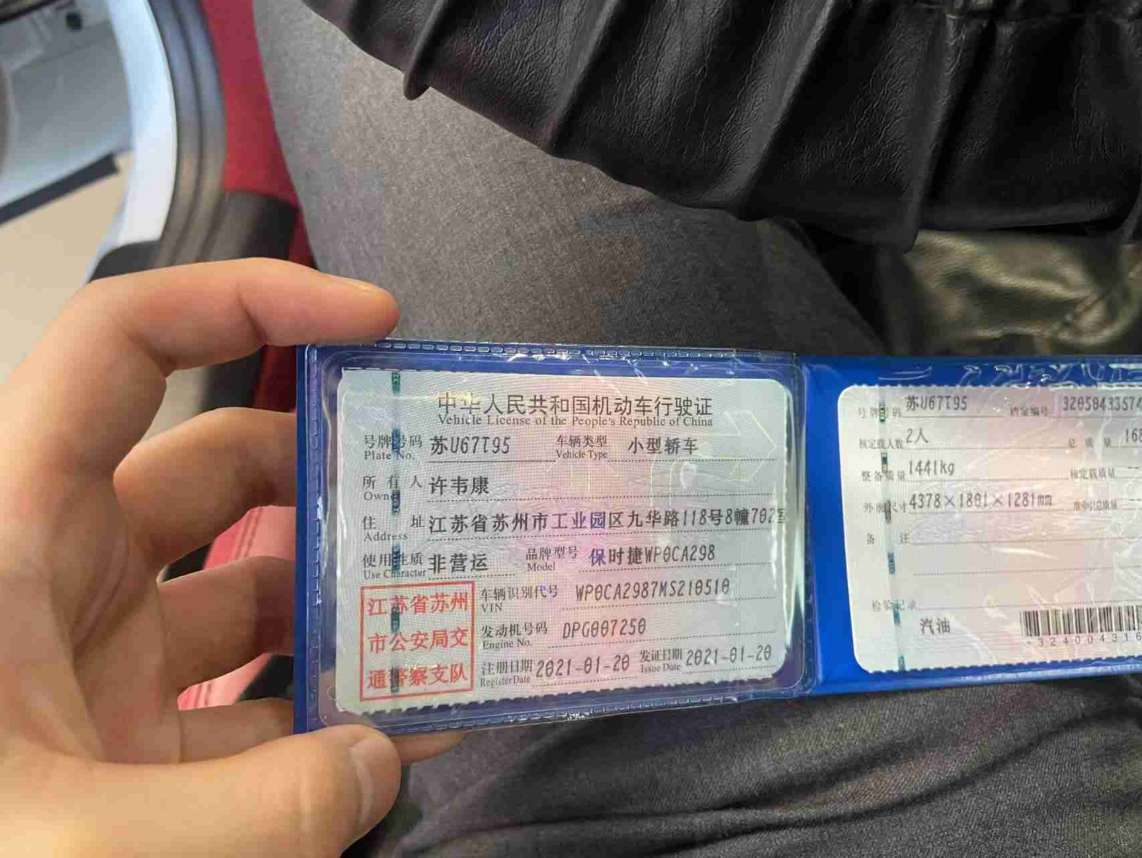 中华人民共和国机动车行驶证
Vehicle License of the People's Republic of China
号牌号码 苏U67T95 车辆类型 小型轿车
Plate No. Vehicle Type
所有人 许韦康
Owner
住址 江苏省苏州市工业园区九华路118号8幢702室
Address
使用性质 非营运 品牌型号 保时捷WP0CA298
Use Character Model
江苏省苏州
市公安局交
通警察支队
车辆识别代号 WP0CA2987MS210510
VIN
发动机号码 DPG007250
Engine No.
注册日期 2021-01-20 发证日期 2021-01-20
Register Date Issue Date
号牌号码 苏U67T95 档案编号 32050433574
核定载人数 2人 总质量
整备质量 1441kg 核定载质量
外廓尺寸 4378×1801×1281mm 准牵引总质量
备注
检验记录
汽油
32400431